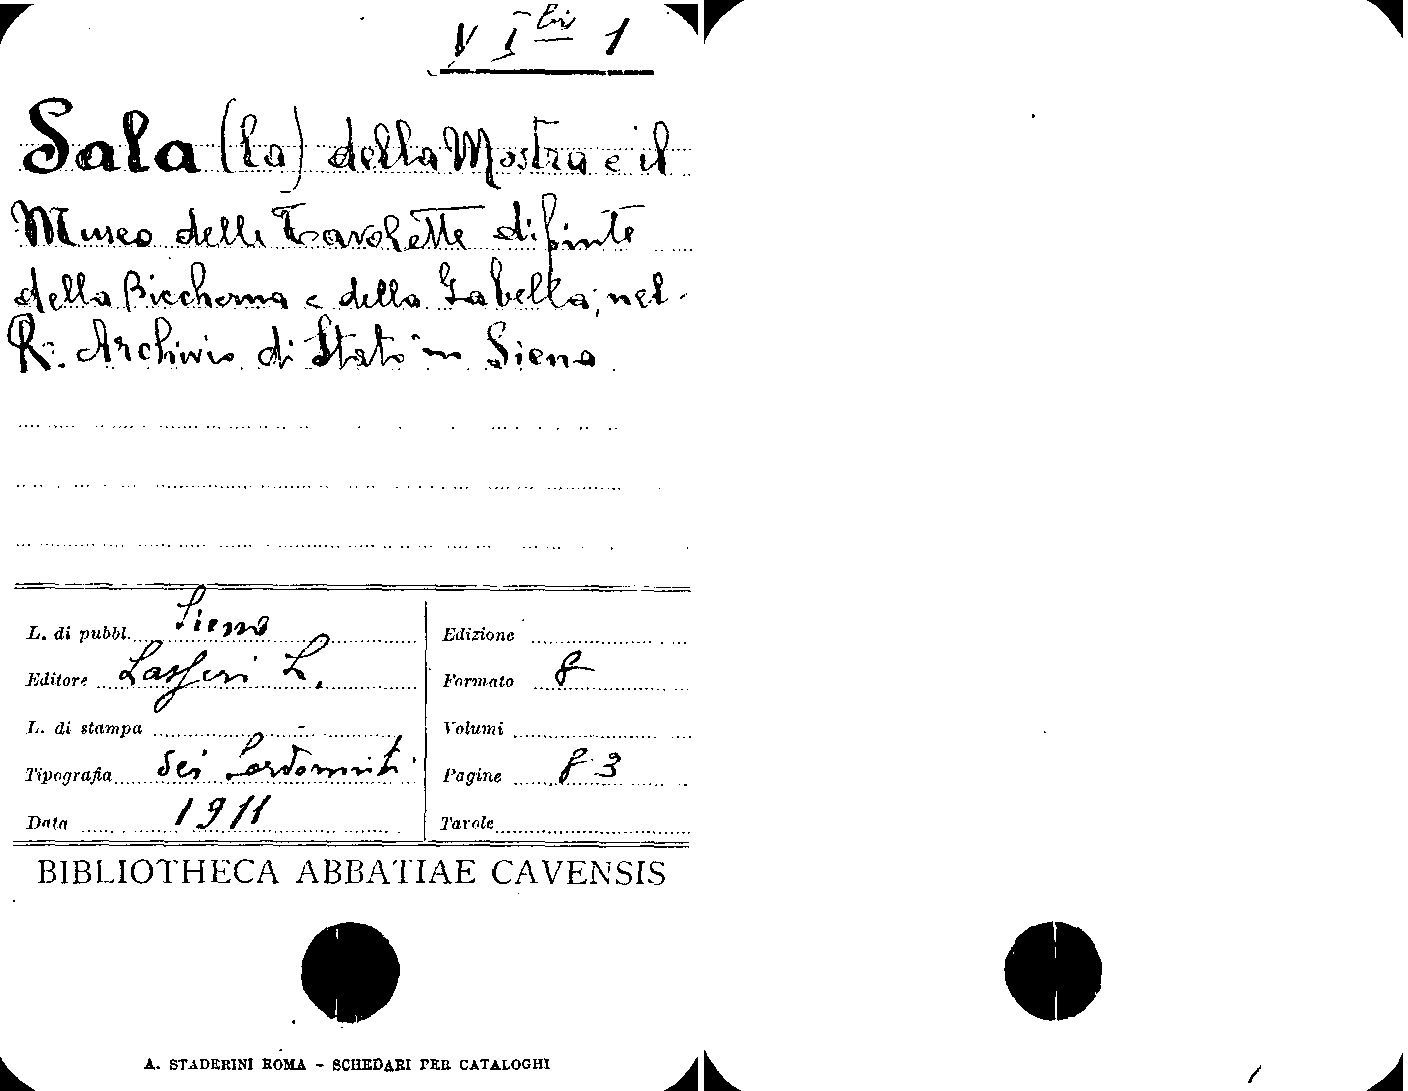 V I bis 1
Sala (la) della Mostra e il
Museo delle Tavolette dipinte
della Biccherna e della Gabella, nel
R. Archivio di Stato in Siena
L. di pubbl. Siena
Editore Lazzeri L.
L. di stampa -
Tipografia dei Sordomuti
Data 1911
Edizione
Formato 8
Volumi
Pagine 83
Tavole
BIBLIOTHECA ABBATIAE CAVENSIS
A. STADERINI ROMA - SCHEDARI PER CATALOGHI